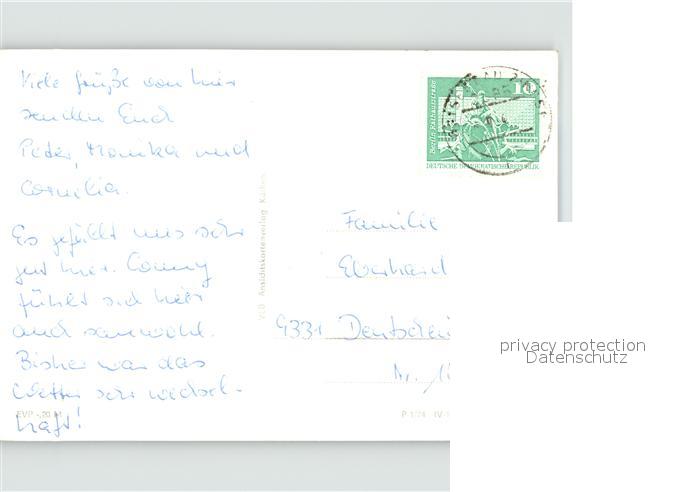 Viele Grüße von hier
senden Euch
Peter, Monika und
Cornelia.
Es gefällt uns sehr
gut hier. Conny
fühlt sich hier
auch sauwohl.
Bisher war das
Wetter sehr wechsel-
haft!
EVP -,20 M
VEB Ansichtskartenverlag
10
Berlin, Rathausstraße
DEUTSCHE DEMOKRATISCHE REPUBLIK
Familie
Eberhard
9331 Deutschei
Nr. 1
P 1/74 IV-1
privacy protection
Datenschutz